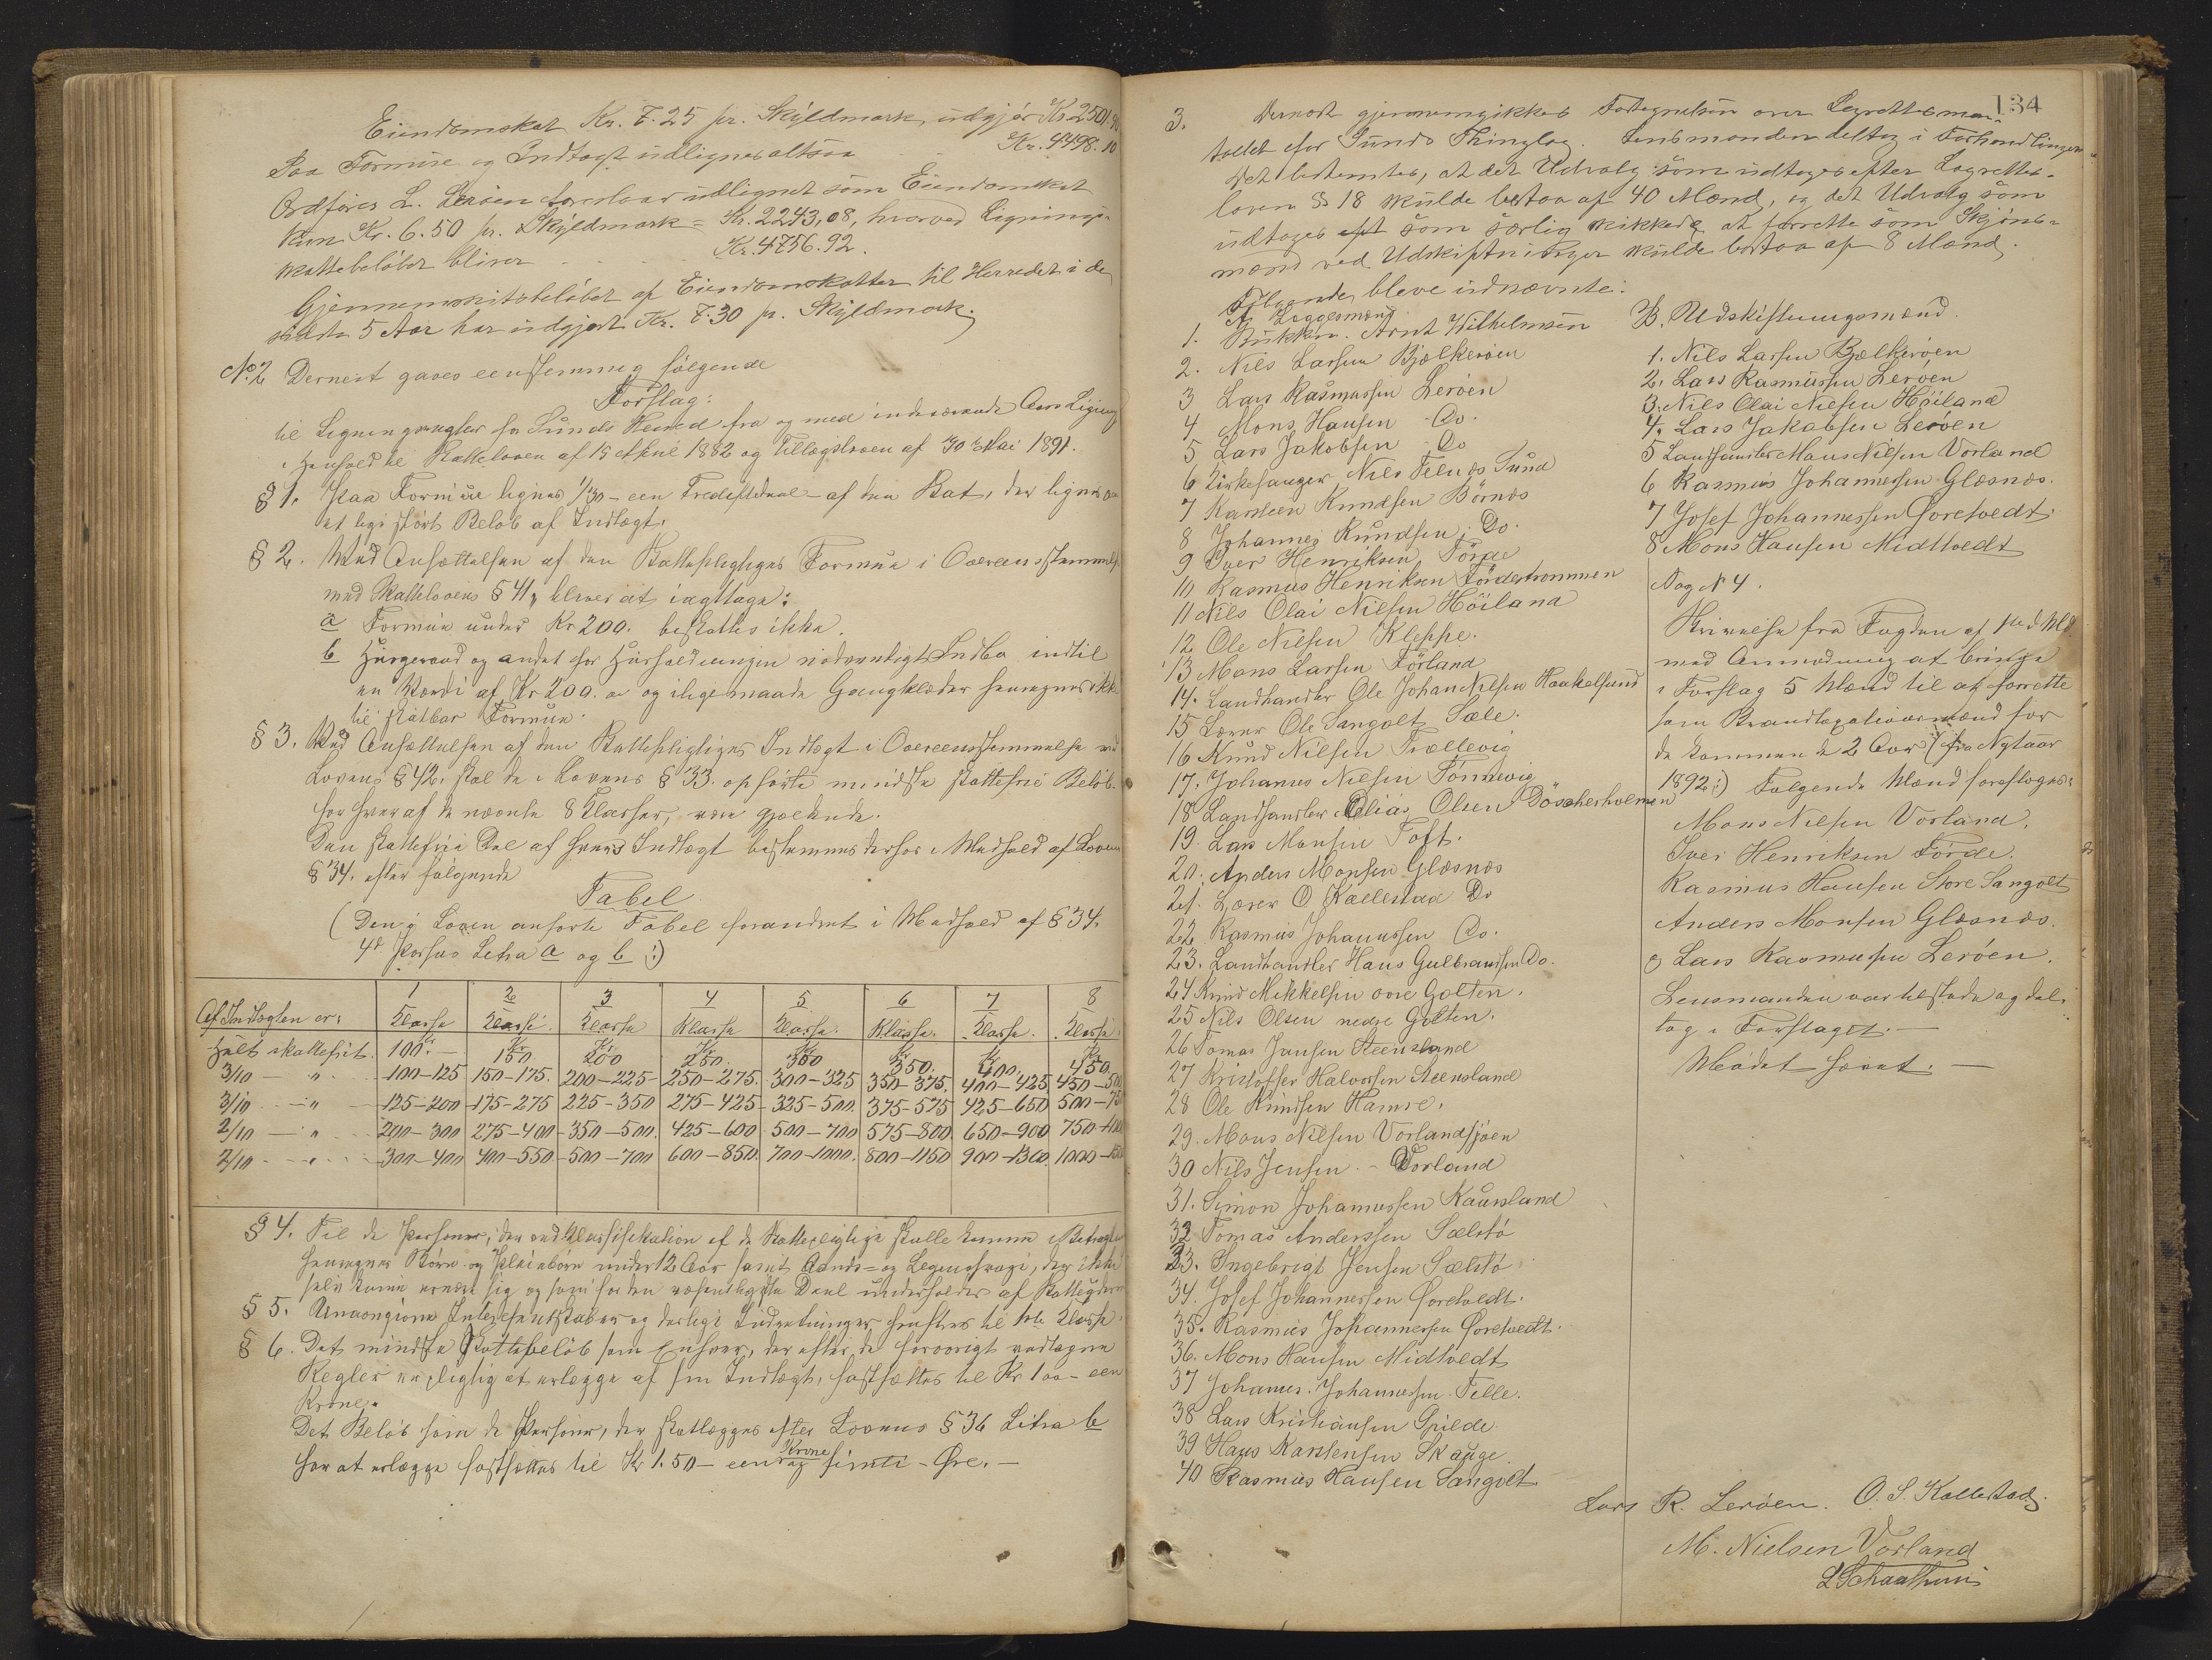 Eiendomskat Kr. 7.25 pr. Skyldmark, udgjør Kr. 2501,90
Paa Formue og Indtægt udlignes altsaa . . Kr. 4498.10
Ordfører L. Lerøen foreslaar udlignet som Eiendomskat
kun Kr. 6.50 pr. Skyldmark = Kr. 2243,08, hvorved Lignings-
skattebeløbet bliver . . . . Kr. 4756.92.
Gjennemsnitsbeløbet af Eiendomsskatten til Herredet i de
sidste 5 Aar har udgjort Kr. 7.30 pr. Skyldmark.
No. 2 Dernæst gaves eenstemmig følgende
Forslag:
til Ligningsregler for Sunds Herred fra og med indeværende Aars Ligning
i Henhold til Skatteloven af 15 April 1882 og Tillægsloven af 30 Mai 1891.
§ 1. Paa Formue lignes 1/30 - een Trediedeel - af den Skat, der lignes paa
et lige stort Beløb af Indtægt.
§ 2. Med Ansættelsen af den Skattepligtiges Formue i Overensstemmelse
med Skattelovens § 41, bliver at iagttage:
a Formue under Kr 200. beskattes ikke.
b Husgeraad og andet for Husholdningen nødvendigt Indbo indtil
en Værdi af Kr 200. og ligemaade Gangklæder henregnes ikke
til skatbar Formue.
§ 3. Ved Ansættelsen af den Skattepligtiges Indtægt i Overensstemmelse med
Lovens § 42, skal de i Lovens § 33. opførte mindste skattefrie Beløb
for hver af de nævnte 8 Klasser, være gjældende.
Den skattefrie Del af hvers Indtægt bestemmes derfor i Medhold af Lovens
§ 34. efter følgende
Tabel
(Den i Loven anførte Tabel forandret i Medhold af § 34.
4de Passus Litra a og b :)
Af Indtægten er: 1 Klasse 2 Klasse 3 Klasse 4 Klasse 5 Klasse. 6 Klasse. 7 Klasse. 8 Klasse.
Helt skattefrit. Kr 100. — Kr 150 Kr 200 Kr 250. Kr 300 Kr 350. Kr 400. Kr 450.
3/10 — " 100-125 150-175. 200-225 250-275. 300-325 350-375. 400-425 450-500
3/10 — " 125-200 175-275 225-350 275-425 325-500. 375-575 425-650 500-750
2/10 — " 200-300 275-400 350-500. 425-600 500-700 575-800 650-900 750-1000
2/10 — " 300-400 400-550 500-700 600-850. 700-1000. 800-1150 900-1300. 1000-
§ 4. Til de Personer, der ved Klassifikation af de Skattepligtige skulle komme i Betragtning
henregnes Børn og Pleiebørn under 12 Aar samt Aands- og Legemssvage, der ikke
selv kunne ernære sig og som for den væsentligste Deel underholdes af Skatteyderen
§ 5. Interessentskaber og deslige Indretninger henføres til 1ste Klasse.
§ 6. Det mindste Skattebeløb som Enhver, der efter de forøvrigt vedtagne
Regler er pligtig at erlægge af sin Indtægt, fastsættes til Kr 1 00 - een
Krone.
Det Beløb som de Personer, der skatlægges efter Lovens § 36 Litra b
har at erlægge fastsættes til Kr 1.50 - een Krone og femti - Øre. —
134
3. Dernæst gjennemgikkes Fortegnelsen over Lagrettesman-
tallet for Sunds Thinglag. Lensmanden deltog i Forhandlingerne
Det bestemtes, at det Udvalg som udtages efter Lagrettes-
loven § 18 skulde bestaa af 40 Mænd, og det Udvalg som
udtages som særlig skikkede at forrette som Skjøns-
mænd ved Udskiftninger skulde bestaa af 8 Mænd.
Følgende bleve udnævnte:
A. Laggesmænd
1. Bukken. Arnt Wilhelmsen
2. Nils Larsen Bjælkerøen
3 Lars Rasmussen Lerøen
4 Mons Hansen Do.
5 Lars Jakobsen Do
6 Kirkesanger Nils Sund
7 Karsten Knudsen Børnæs
8 Johannes Knudsen Do.
9 Iver Henriksen Førde
10 Rasmus Henriksen Førdestrømmen
11 Nils Olai Nilsen Høiland
12 Ole Nilsen Kleppe.
13 Mons Larsen Førland
14. Landhandler Ole Johan Nilsen Haakelsund
15 Lærer Ole Sangolt Sæle.
16 Knud Nilsen Trællevig
17. Johannes Nilsen Tønnevig
18 Landhandler Elias Olsen Døscherholmen
19 Lars Monsen Toft.
20. Anders Monsen Glæsnæs
21. Lærer O Kallestad Do
22 Rasmus Johannessen Do.
23. Landhandler Hans Gulbrandsen Do.
24 Knud Mikkelsen øvre Golten.
25 Nils Olsen nedre Golten.
26 Tomas Jansen Steensland
27 Kristoffer Halvorsen Steensland
28 Ole Knudsen Hamre.
29. Mons Nilsen Vorlandsjøen
30 Nils Jensen - Vorland
31. Simon Johannessen Kausland
32 Tomas Anderssen Sælstø
33. Ingebrigt Jensen Sælstø
34. Josef Johannessen Øvretvedt.
35. Rasmus Johannessen Øvretvedt.
36. Mons Hansen Midttvedt
37 Johannes Johannessen Telle.
38 Lars Kristiansen Spilde
39 Hans Karstensen Skauge
40 Rasmus Hansen Sangolt
B. Udskiftningsmænd.
1. Nils Larsen Bjelkerøen
2. Lars Rasmussen Lerøen
3. Nils Olai Nielsen Høiland
4. Lars Jakobsen Lerøen
5 Landhandler Mons Nilsen Vorland
6 Rasmus Johannessen Glæsnæs.
7 Josef Johannessen Øvretvedt.
8 Mons Hansen Midttvedt
Sag N 4.
Skrivelse fra Fogden af 1ste d Md
med Anmodning at bringe
i Forslag 5 Mænd til at forrette
som Brandtaxationsmænd for
de kommende 2 Aar (fra Nytaar
1892:) Følgende Mænd foresloges:
Mons Nilsen Vorland,
Iver Henriksen Førde.
Rasmus Hansen Store Sangolt
Anders Monsen Glæsnæs.
og Lars Rasmussen Lerøen.
Lensmanden var tilstede og del-
tog i Forslaget. —
Mødet hævet. —
Lars R. Lerøen. O. S. Kallestad.
M. Nielsen Vorland
L Schaathun